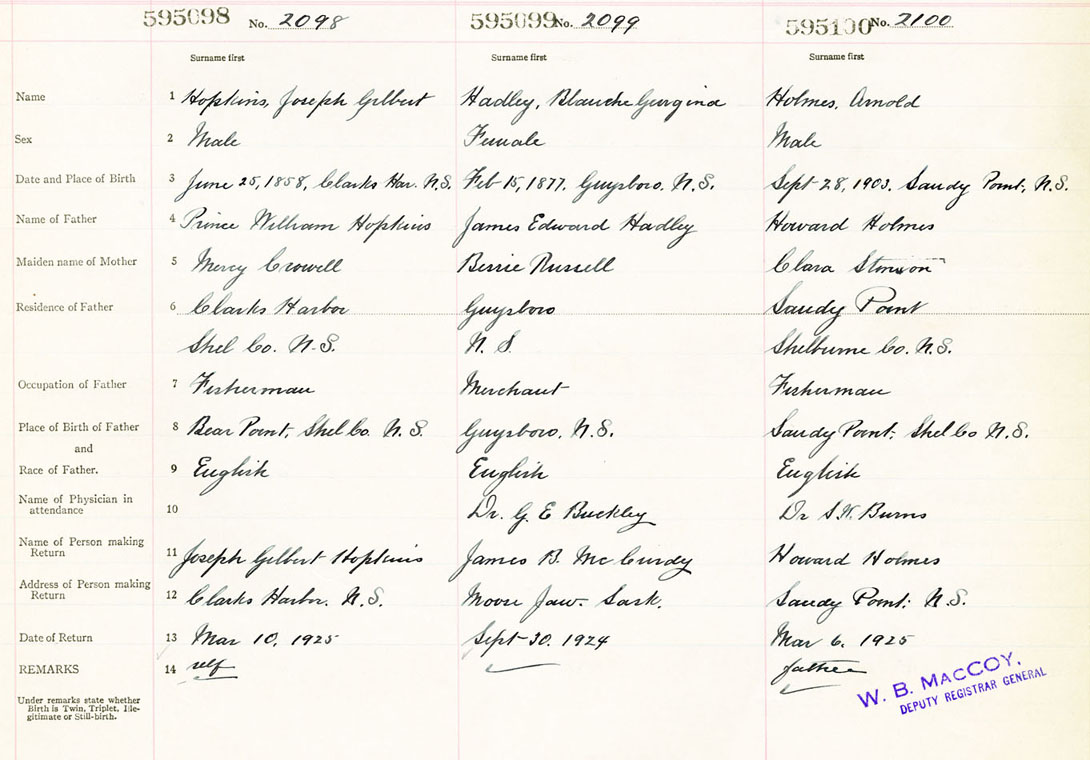 595098 No. 2098 595099 No. 2099 595100 No. 2100
Surname first Surname first Surname first
Name 1 Hopkins, Joseph Gilbert Hadley, Blanche Gurgina Holmes, Arnold
Sex 2 Male Female Male
Date and Place of Birth 3 June 25, 1858, Clarks Har. N.S. Feb 15, 1877. Guysboro. N.S. Sept 28, 1903. Sandy Point, N.S.
Name of Father 4 Prince William Hopkins James Edward Hadley Howard Holmes
Maiden name of Mother 5 Mercy Crowell Bessie Russell Clara
Residence of Father 6 Clarks Harbor Guysboro Sandy Point
Shel Co. N.S. N. S. Shelburne Co. N.S.
Occupation of Father 7 Fisherman Merchant Fisherman
Place of Birth of Father 8 Bear Point, Shel Co. N.S. Guysboro, N.S. Sandy Point; Shel Co N.S.
and
Race of Father. 9 English English English
Name of Physician in
attendance 10 Dr. G. E Buckley Dr S.W. Burns
Name of Person making
Return 11 Joseph Gilbert Hopkins James B. McCurdy Howard Holmes
Address of Person making
Return 12 Clarks Harbor. N.S. Moose Jaw. Sask. Sandy Point; N.S.
Date of Return 13 Mar 10, 1925 Sept 30. 1924 Mar 6. 1925
REMARKS 14 self father
W. B. MACCOY,
DEPUTY REGISTRAR GENERAL
Under remarks state whether
Birth is Twin, Triplet, Ille-
gitimate or Still-birth.